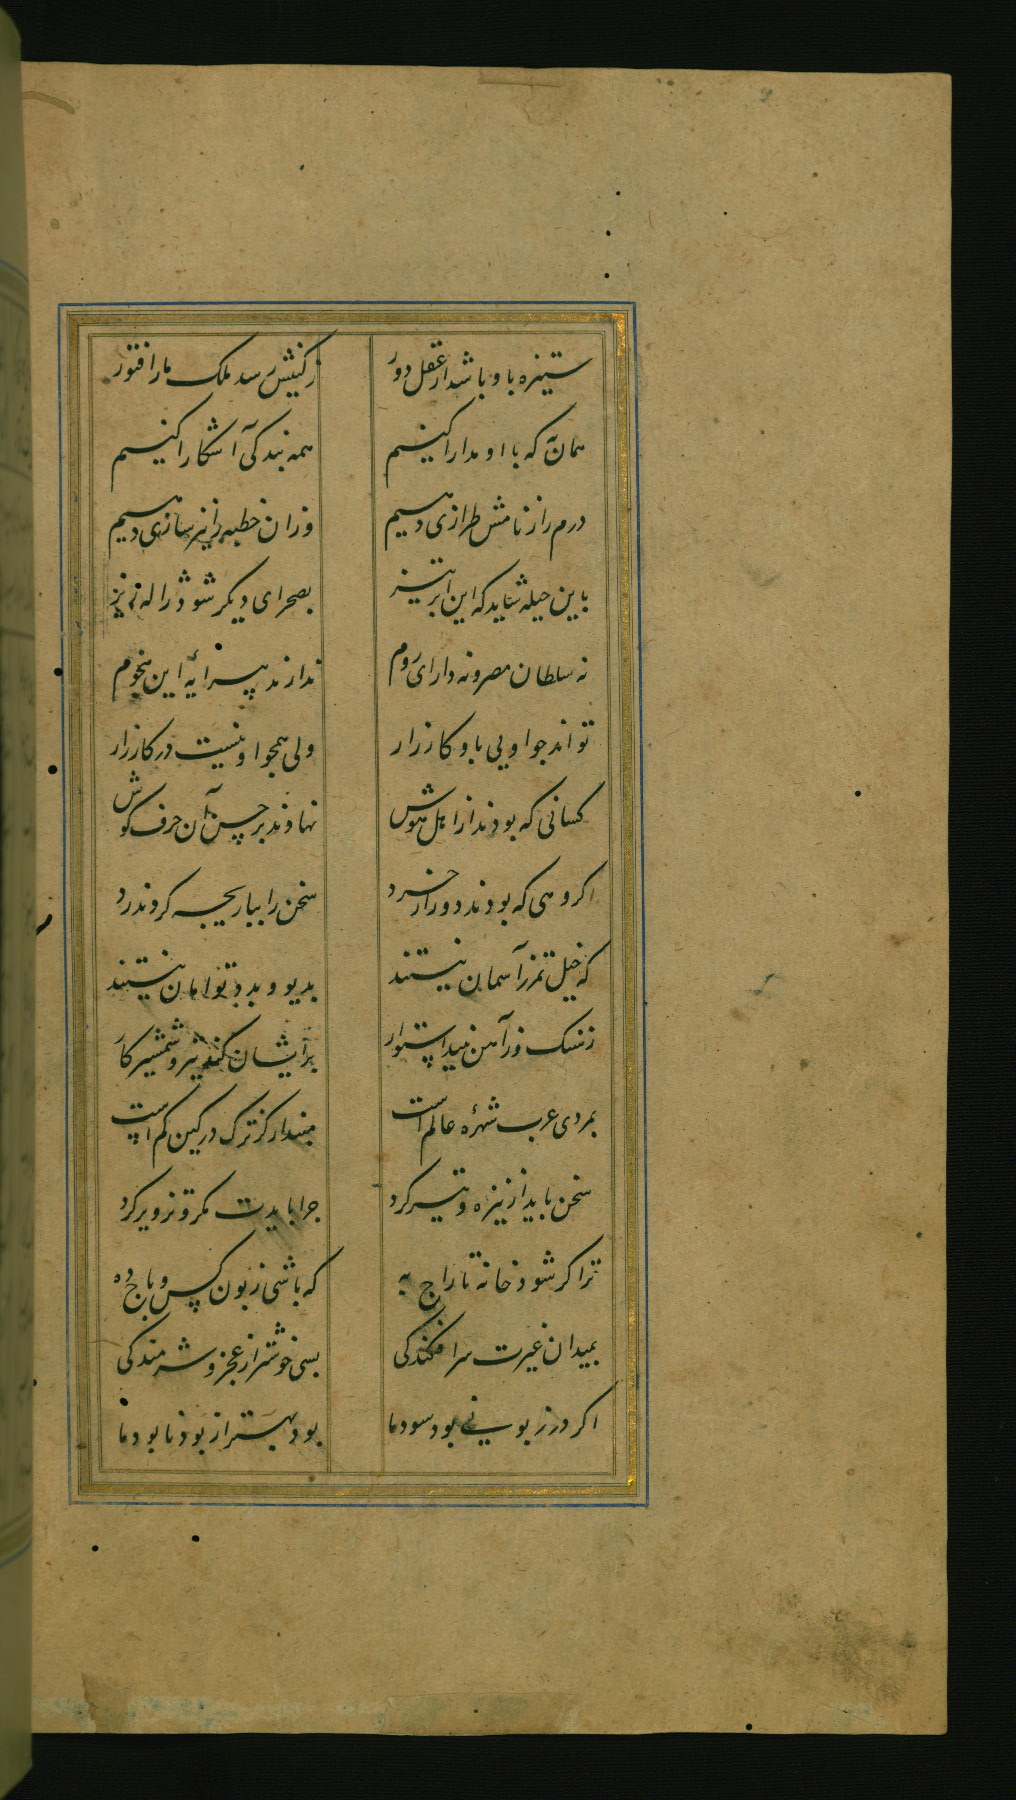 ستیزه با او باشد از عقل دور زکینش رسد ملک ما را فتور
همان به که با او مدارا کنیم همه بندکی آشکارا کنیم
درم را ز نامش طرازی دهیم وزان خطبه را نیز سازی دهیم
باین حیله شاید که این ابر تیز بصحرای دیکر شود ژاله ریز
نه سلطان مصر و نه دارای روم ندارند پرایه این هجوم
تواند جوا ویی باو کارزار ولی همچو او نیست در کارزار
کسانی که بودند از اهل هوش نهادند بر حسن آن حرف کوش
کروهی که بودند دور از خرد سخن را کردند رد
که خیل تمر ز آسمان نیستند بدیو و بدد توامان نیستند
ز سنک وز آهن نیند استوار برایشان کند تیر و شمشیر کار
بمردی عرب شهرهٔ عالم است مپندار کز ترک در کین کم است
سخن باید از نیزه و تیر کرد چرا بایدت مکر و تزویر کرد
ترا کر شود خانه تاراج به که باشی زبون کس و باج ده
بمیدان غیرت سرافکندکی بسی خوشتر از عجز و شرمندکی
اکر در زبونی بود سود ما بود بهتر از بود نابود ما